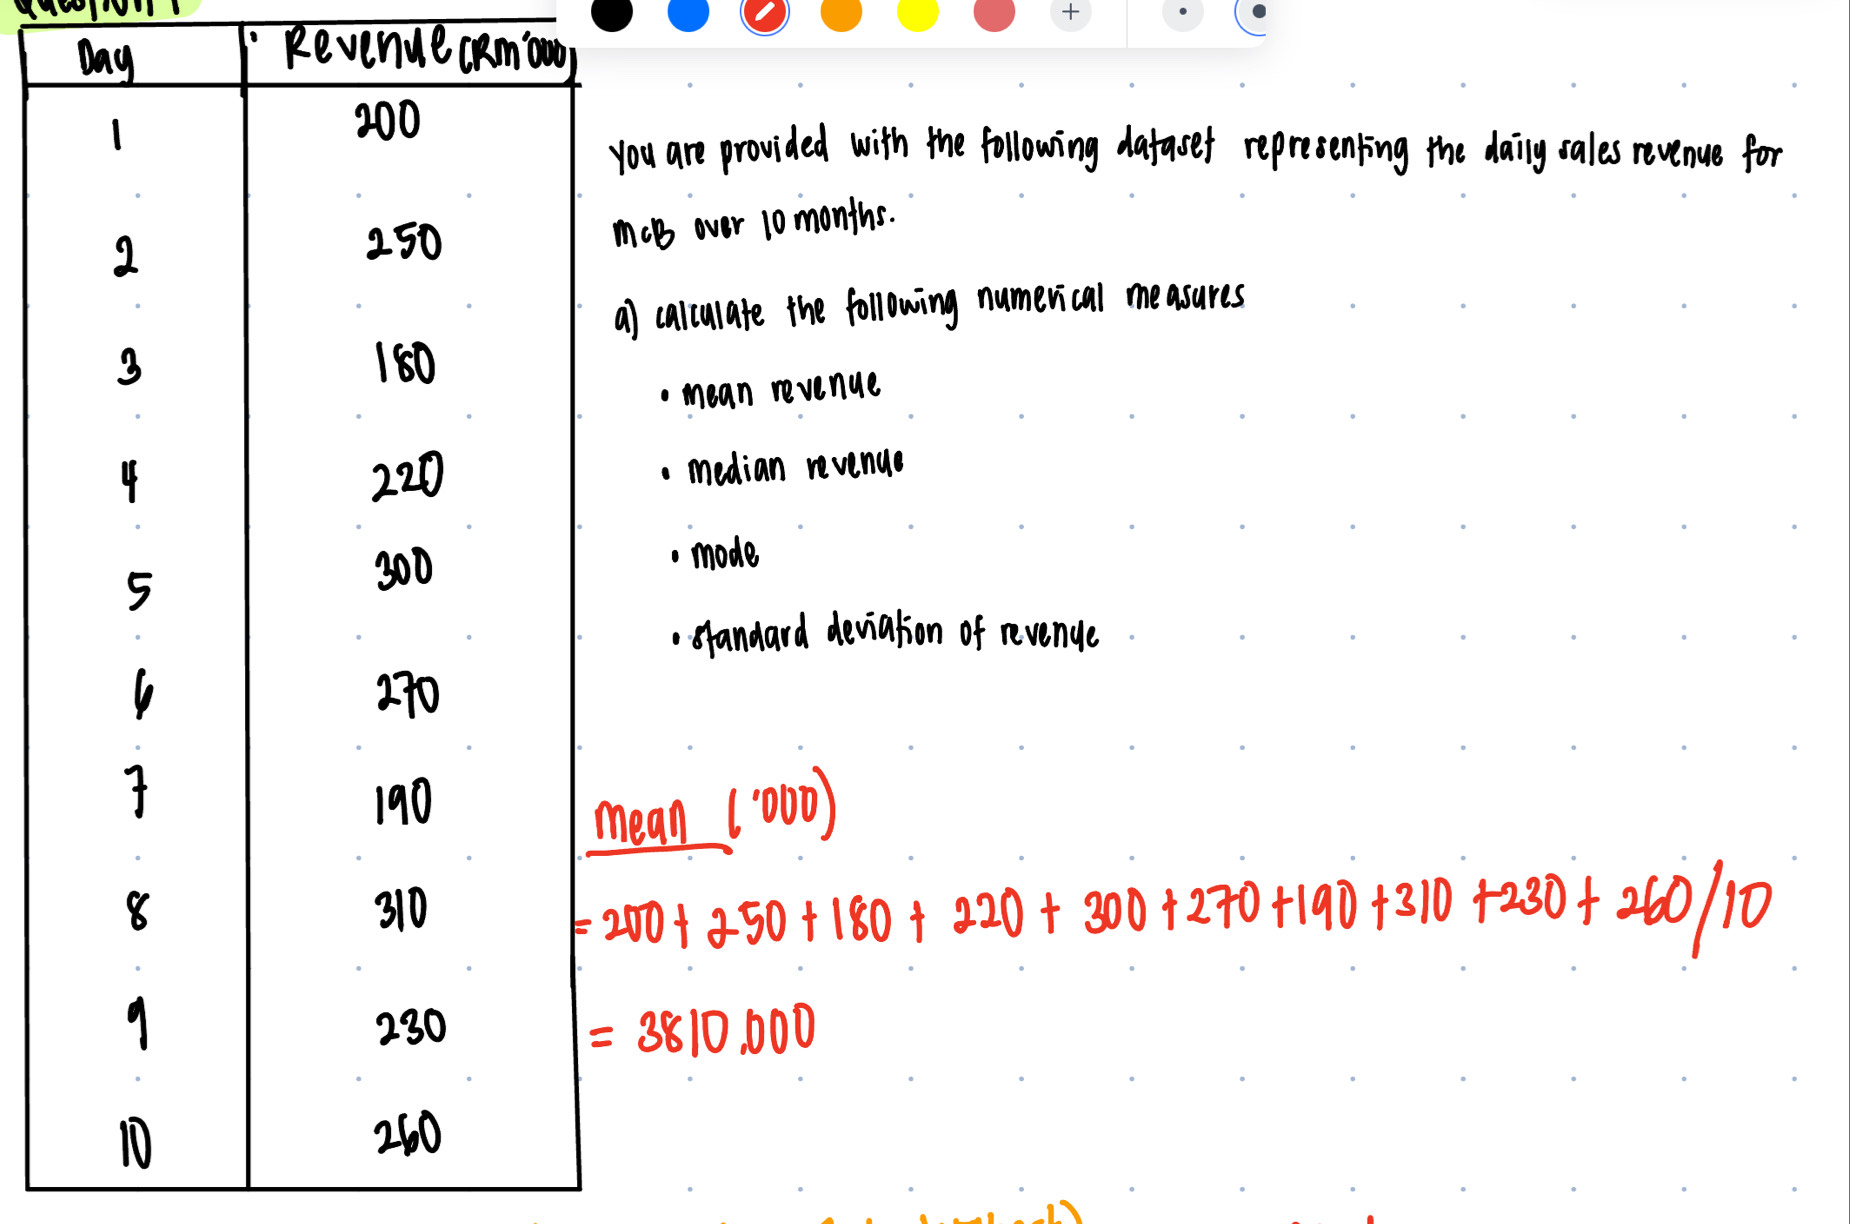 Question 1
Day Revenue (RM'000)
1 200
2 250
3 180
4 220
5 300
6 270
7 190
8 310
9 230
10 260
You are provided with the following dataset representing the daily sales revenue for
McB over 10 months.
a) calculate the following numerical measures
• mean revenue
• median revenue
• mode
• standard deviation of revenue
mean ('000)
= 200 + 250 + 180 + 220 + 300 + 270 + 190 + 310 + 230 + 260/10
= 3810,000